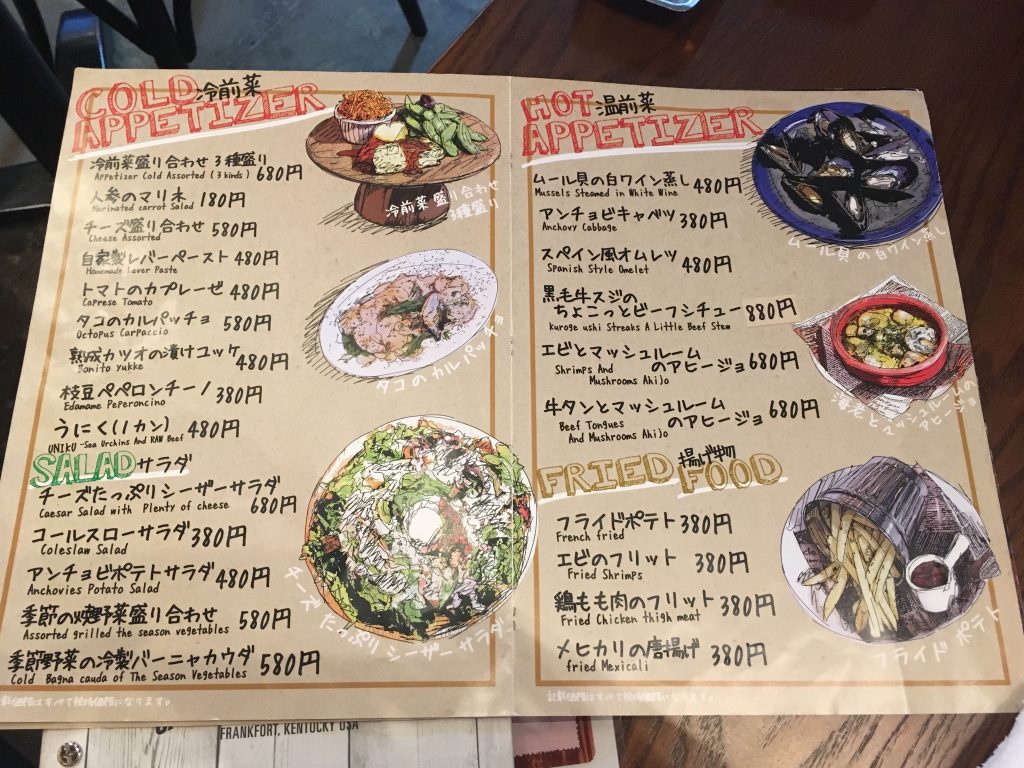 COLD 冷前菜
APPETIZER
冷前菜盛り合わせ 3種盛り
Appetizer Cold Assorted (3 kinds) 680円
人参のマリネ 180円
Marinated carrot Salad
チーズ盛り合わせ 580円
Cheese Assorted
自家製レバーペースト 480円
Homemade Lever Paste
トマトのカプレーゼ 480円
Caprese Tomato
タコのカルパッチョ 580円
Octopus Carpaccio
熟成カツオの漬けユッケ 480円
Bonito Yukke
枝豆ペペロンチーノ 380円
Edamame Peperoncino
うにく(1カン) 480円
UNIKU -Sea Urchins And RAW Beef
冷前菜 盛り合わせ
3種盛り
タコのカルパッチョ
SALAD サラダ
チーズたっぷりシーザーサラダ
Caesar Salad with Plenty of cheese 680円
コールスローサラダ 380円
Coleslaw Salad
アンチョビポテトサラダ 480円
Anchovies Potato Salad
季節の焼野菜盛り合わせ 580円
Assorted grilled the season vegetables
季節野菜の冷製バーニャカウダ 580円
Cold Bagna cauda of The Season Vegetables
チーズたっぷりシーザーサラダ
HOT 温前菜
APPETIZER
ムール貝の白ワイン蒸し 480円
Mussels Steamed in White Wine
アンチョビキャベツ 380円
Anchovy Cabbage
スペイン風オムレツ 480円
Spanish Style Omelet
黒毛牛スジの
ちょこっとビーフシチュー 880円
Kuroge ushi Streaks A Little Beef Stew
エビとマッシュルーム
のアヒージョ 680円
Shrimps And
Mushrooms Ahijo
牛タンとマッシュルーム
のアヒージョ 680円
Beef Tongues
And Mushrooms Ahijo
ムール貝の白ワイン蒸し
海老とマッシュルームの
アヒージョ
FRIED 揚げ物
FOOD
フライドポテト 380円
French fried
エビのフリット 380円
Fried Shrimps
鶏もも肉のフリット 380円
Fried Chicken thigh meat
メヒカリの唐揚げ 380円
fried Mexicali
フライドポテト
記載価格はすべて税抜価格になります。
記載価格はすべて税抜価格になります。
FRANKFORT, KENTUCKY USA